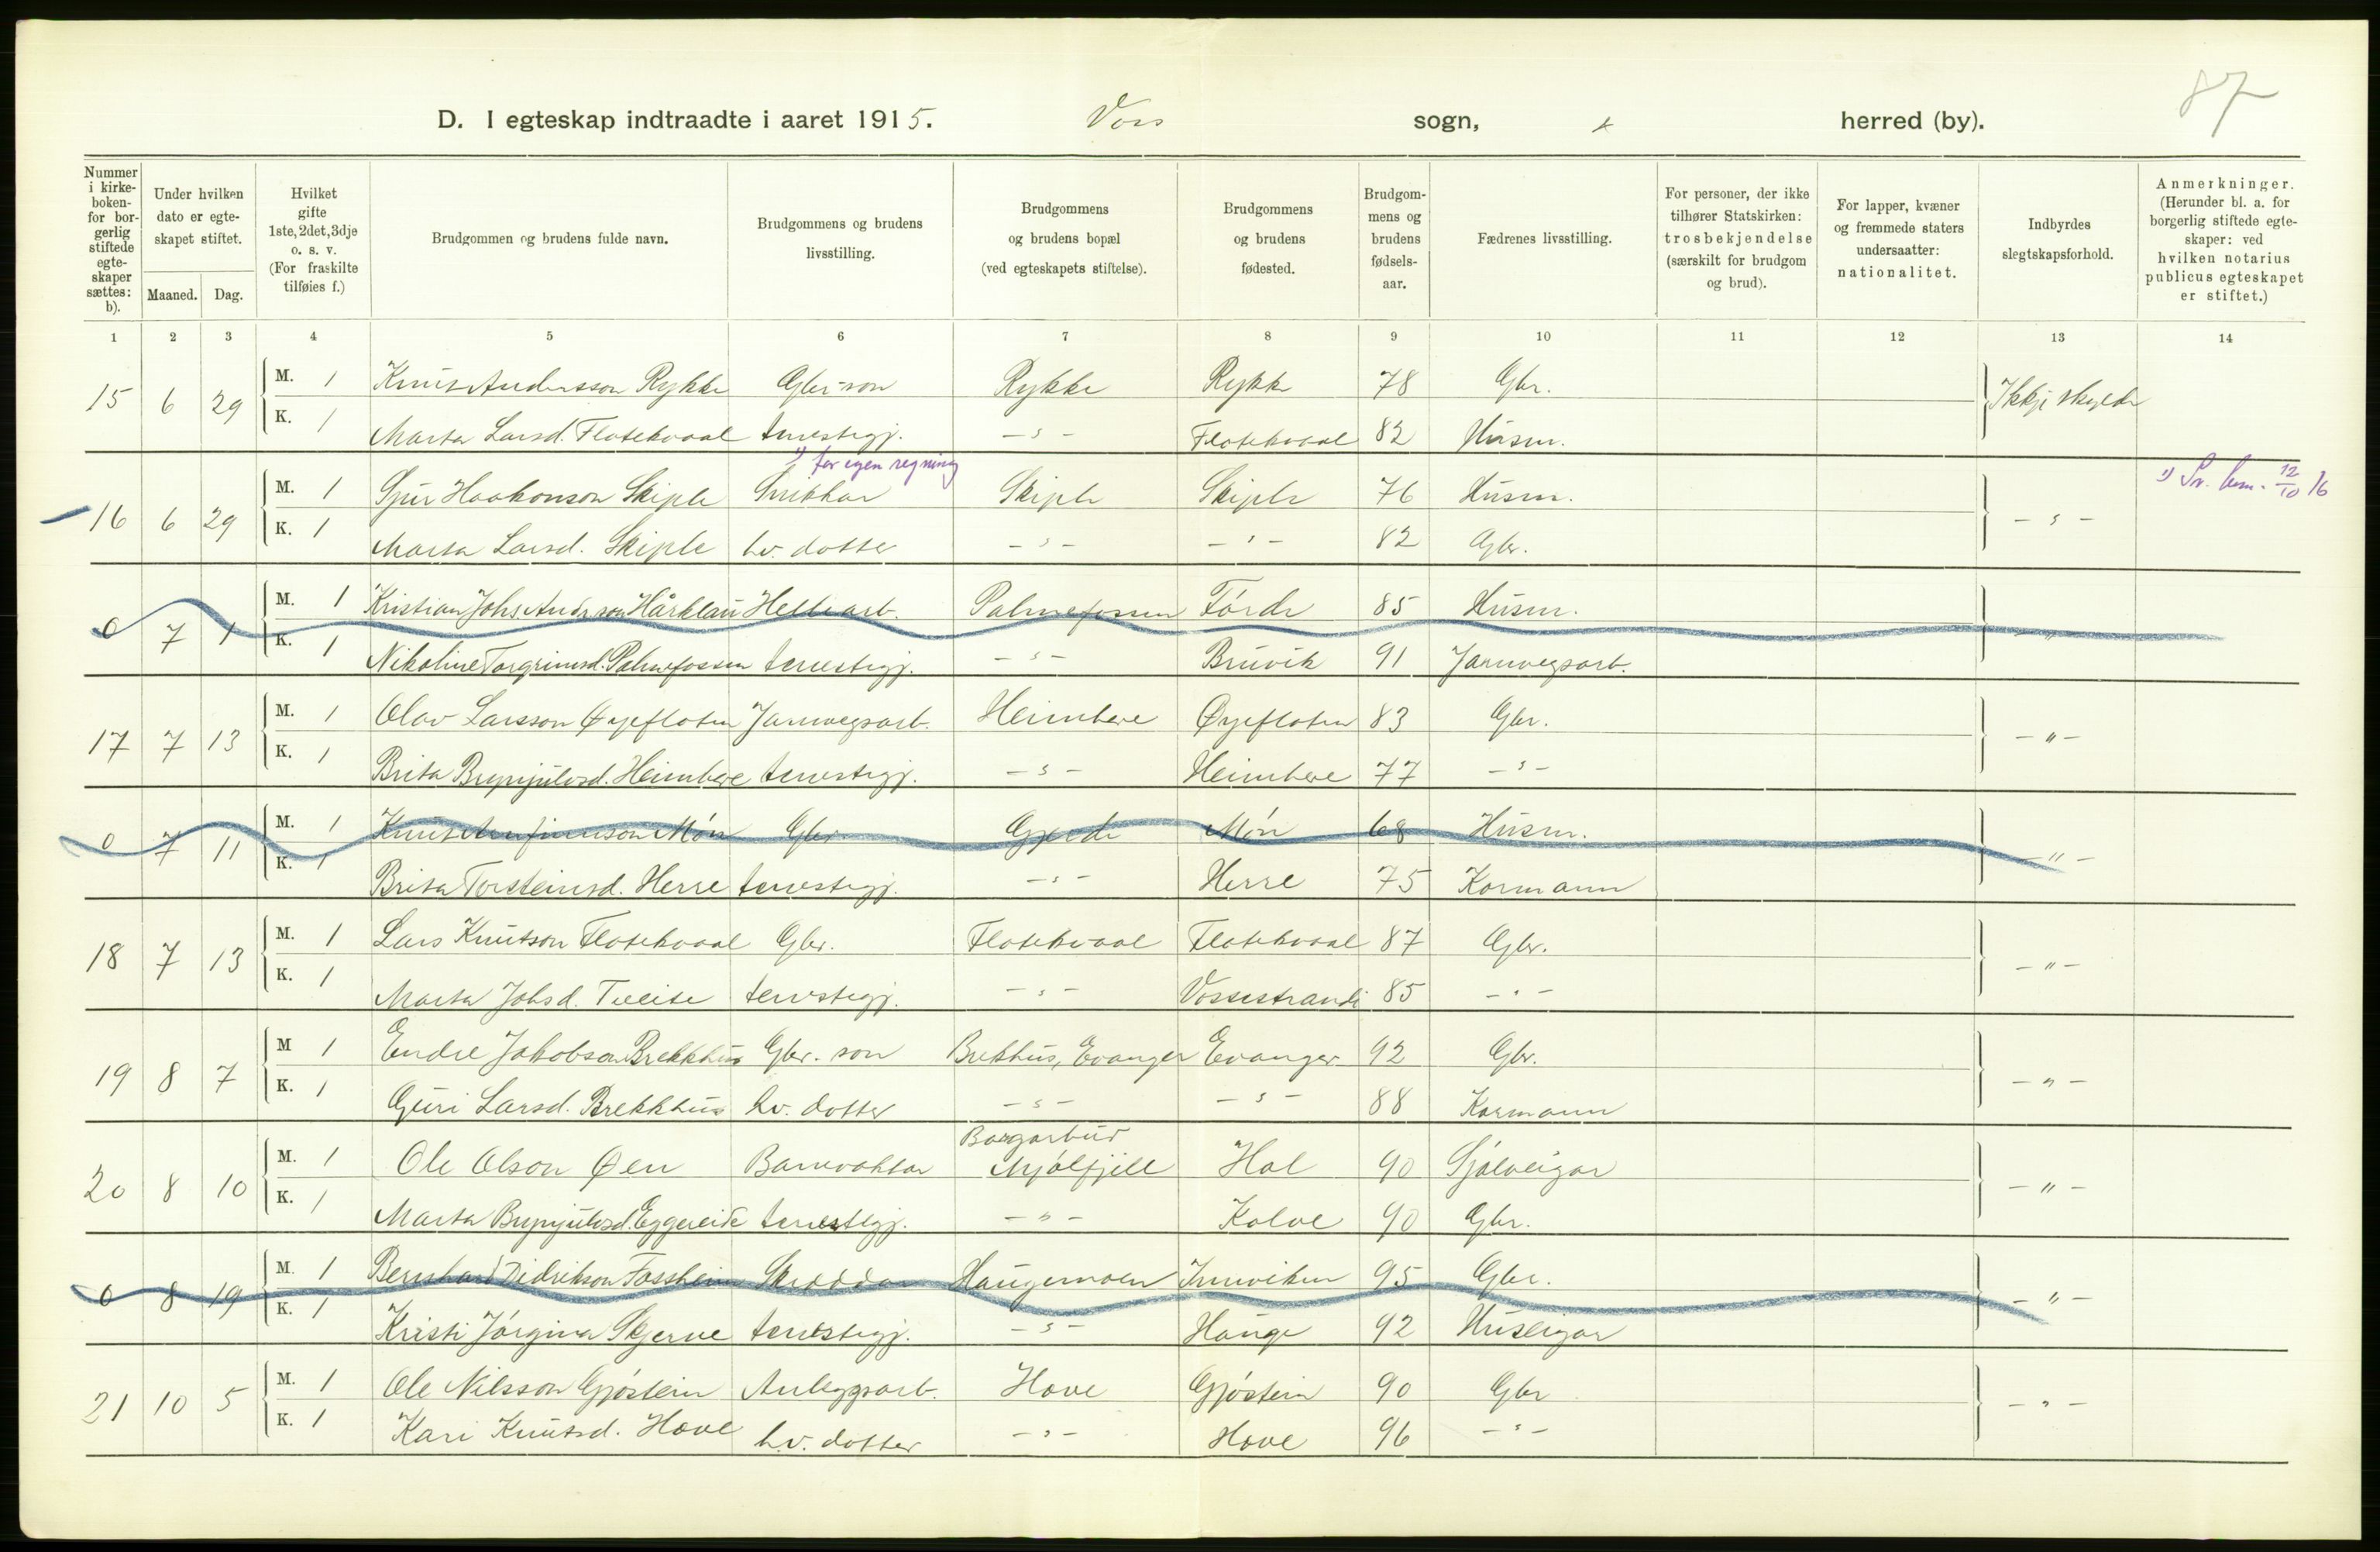 87
D. I egteskap indtraadte i aaret 1915. Voss sogn, herred (by).
Nummer i kirke-boken- for bor-gerlig stiftede egte-skaper sættes: b).
Under hvilken dato er egte-skapet stiftet.
Maaned. Dag.
Hvilket gifte 1ste, 2det, 3dje o. s. v. (For fraskilte tilføies f.)
Brudgommen og brudens fulde navn.
Brudgommens og brudens livsstilling.
Brudgommens og brudens bopæl (ved egteskapets stiftelse).
Brudgommens og brudens fødested.
Brudgom-mens og brudens fødsels-aar.
Fædrenes livsstilling.
For personer, der ikke tilhører Statskirken: trosbekjendelse (særskilt for brudgom og brud).
For lapper, kvæner og fremmede staters undersaatter: nationalitet.
Indbyrdes slegtskapsforhold.
Anmerkninger. (Herunder bl. a. for borgerlig stiftede egte-skaper: ved hvilken notarius publicus egteskapet er stiftet.)
1 2 3 4 5 6 7 8 9 10 11 12 13 14
15 6 29 M. 1 Knut Andersson Rykke Gbr-son Rykke Rykke 78 Gbr. Ikkji skylde
K. 1 Marta Larsd. Flatekvaal tenestegj. -"- Flatekvaal 82 Husm.
1) for egen regning
16 6 29 M. 1 Sjur Haakonson Skiple Snikkar Skiple Skiple 76 Husm. -"- 1) Sv. kom. 12/10 16
K. 1 Marta Larsd. Skiple hv. dotter -"- -"- 82 Gbr.
0 7 1 M. 1 Kristian Johs. Andrson Hårklau Hellearb. Palmefossen Førde 85 Husm. -"-
K. 1 Nikoline Torgrimsd. Palmefossen tenestegj. -"- Bruvik 91 Jarnvegsarb.
17 7 13 M. 1 Olav Larsson Øyeflaten Jarnvegsarb. Heimbere Øyeflaten 83 Gbr. -"-
K. 1 Brita Brynjulvsd. Heimbere tenestegj. -"- Heimbere 77 -"-
0 7 11 M. 1 Knut Arnfinnson Møn Gbr. Gjerde Møn 68 Husm. -"-
K. 1 Brita Torsteinsd. Herre tenestegj. -"- Herre 75 Kormann
18 7 13 M. 1 Lars Knutson Flatekvaal Gbr. Flatekvaal Flatekvaal 87 Gbr. -"-
K. 1 Marta Johsd. Tveite tenestegj. -"- Vossestrandi 85 -"-
19 8 7 M 1 Endre Jakobson Brekkhus Gbr. son Brekhus, Evanger Evanger 92 Gbr. -"-
K. 1 Guri Larsd. Brekkhus hv. dotter -"- -"- 88 Kormann
Borgarbud
20 8 10 M. 1 Ole Olson Øen Banevaktar Mjølfjell Hol 90 Sjølveigar -"-
K. 1 Marta Brynjulvsd. Eggereide tenestegj. -"- Kolve 90 Gbr.
0 8 19 M. 1 Bernhard Didrikson Fossheim Skraddar Haugamoen Innviken 95 Gbr. -"-
K. 1 Kristi Jørgina Skjerve tenestegj. -"- Hauge 92 Huseigar
21 10 5 M. 1 Ole Nilsson Gjøstein Anleggsarb. Hove Gjøstein 90 Gbr -"-
K. 1 Kari Knutsd. Hove hv. dotter -"- Hove 96 -"-